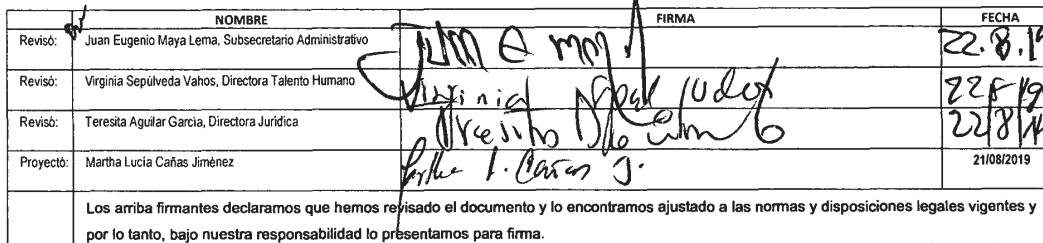 NOMBRE FIRMA FECHA
Revisó: Juan Eugenio Maya Lema, Subsecretario Administrativo Juan E mm 22.8.19
Revisó: Virginia Sepúlveda Vahos, Directora Talento Humano Virginia 22 8 19
Revisó: Teresita Aguilar García, Directora Jurídica Teresita 22/8/19
Proyectó: Martha Lucía Cañas Jiménez Martha L. Cañas J. 21/08/2019
Los arriba firmantes declaramos que hemos revisado el documento y lo encontramos ajustado a las normas y disposiciones legales vigentes y
por lo tanto, bajo nuestra responsabilidad lo presentamos para firma.